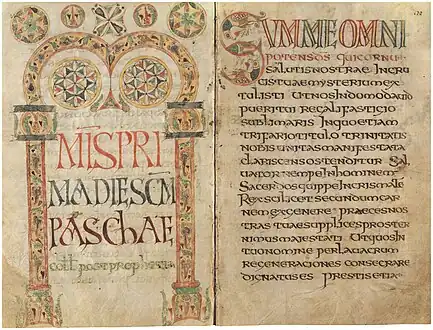 MIS PRI
MA DIE SCM
PASCHAE
coll post prophetia
SVMME OMNI
POTENS DS QUI CORNU
SALUTIS NOSTRAE IN CRU
CIS TUAE MYSTERIUM EX
TULISTI UT NOS IN DOMO DAVID
PUERI TUI REGALI FASTIGIO
SUBLIMARIS IN QUO ETIAM
TRIFARIO TITULO TRINITATIS
NOBIS UNITAS MANIFESTATA
CLARISCENS OSTENDITUR SAL
UATOR NEMPE IN HOMINEM
SACERDOS QUIPPE IN CRISMATE
REX SCILICET SECUNDUM CAR
NEM EX GENERE PRAECES NOS
TRAS TUAE SUPPLICES PROSTER
NIMUS MAIESTATI UT QUOS IN
TUO NOMINE PER LAUACRUM
REGENERACIONES CONSECRARE
DIGNATUS ES PRESTIS ETIA